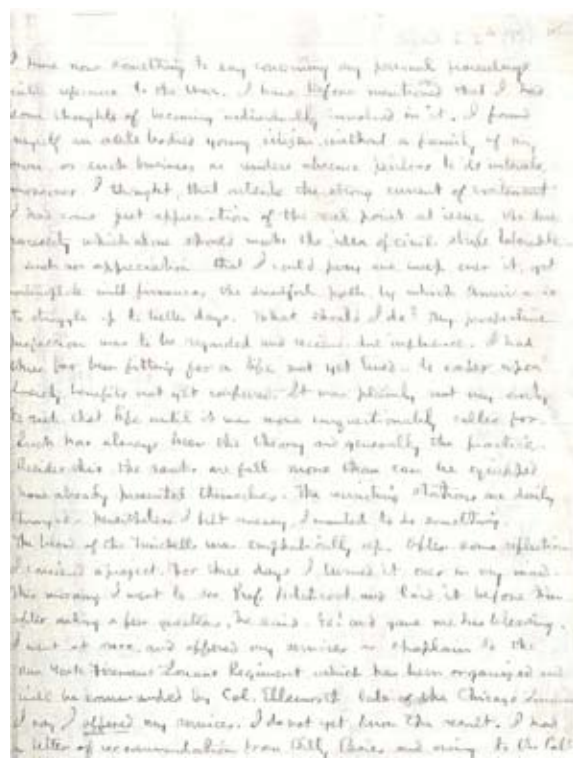 I have now something to say concerning my personal
with reference to the war. I have before mentioned that I had
some thoughts of becoming individually involved in it. I found
myself an able bodied young citizen, without a family of my
own, or such business as renders absence
moreover I thought, that outside the strong current of excitement
I had some just appreciation of the real point at issue. the
necessity which alone should make the idea of civil strife tolerable.
such an appreciation that I could pray and weep over it, yet
the path, by which America is
to struggle up to better days. What should I do? My prospective
profession was to be regarded and received due importance. I had
thus far been fitting for a life not yet lived. to enter upon
benefits not yet conferred. It was plainly not my duty
to risk that life until it was more unquestionably called for.
Such has always been the theory and generally the practice.
Besides this the ranks are full more than can be equipped
have already presented themselves. The recruiting stations are daily
thronged. Nevertheless I felt uneasy, I wanted to do something.
The blood of the Twichells was emphatically up. After some reflection
I conceived a project. For three days I turned it over in my mind.
This morning I went to see Prof. Hitchcock and laid it before him
after asking a few questions, he said. Go! and gave me his blessing.
I went at once and offered my services as chaplain to the
New York Firemens Zouave Regiment which has been organized and
will be commanded by Col. Ellsworth late of the Chicago Zouaves
I say I offered my services. I do not yet know the result. I had
a letter of recommendation from Billy and to the Col